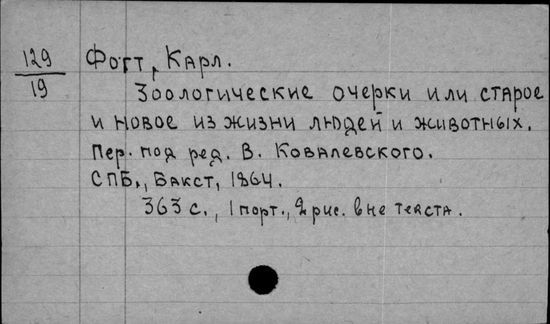 129
19
Фогт, Карл.
Зоологические очерки или старое
и новое из жизни людей и животных.
Пер. под ред. В. Ковалевского.
СПБ., Бакст, 1864.
363 с., 1 порт., 2 рис. вне текста.